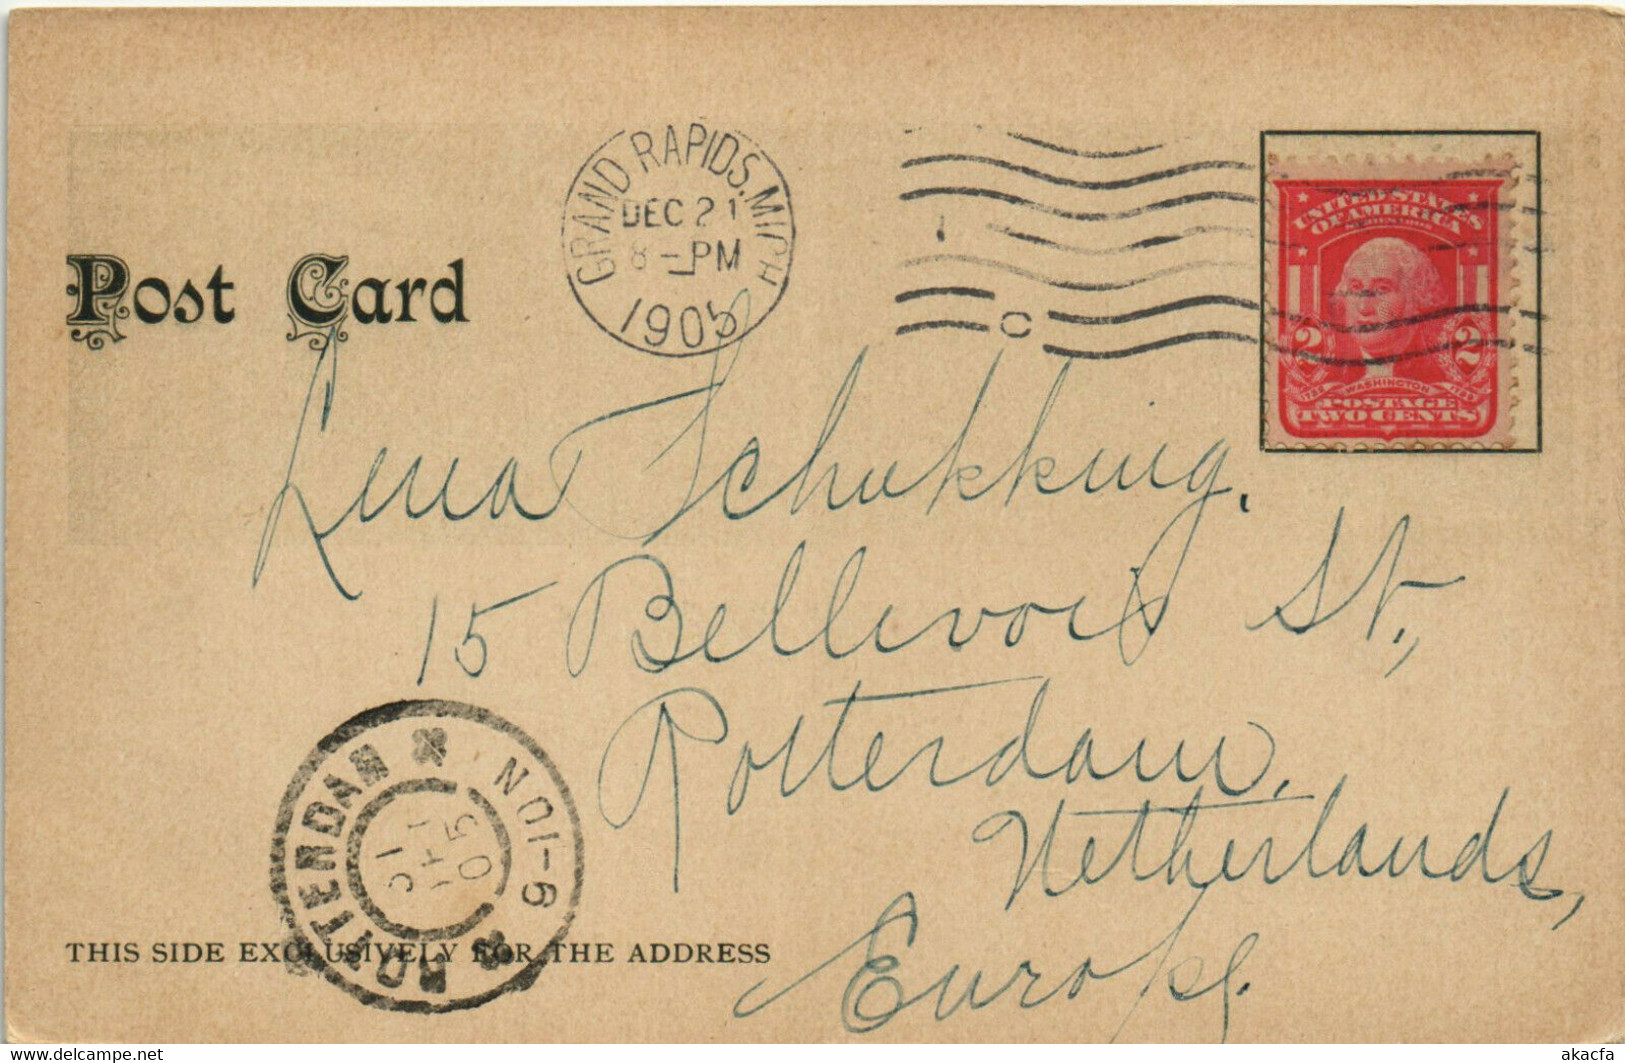 GRAND RAPIDS. MICH
DEC 21
8-PM
1905
C
UNITED STATES
OF AMERICA
2 2
WASHINGTON
POSTAGE
TWO CENTS
Post Card
Lena Schukking.
15 Bellevois St.,
Rotterdam,
Netherlands,
Europe.
ROTTERDAM
9-10N
05
THIS SIDE EXCLUSIVELY FOR THE ADDRESS
www.delcampe.net
akacfa